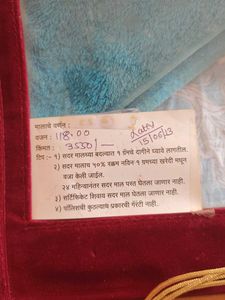 मालाचे वर्णन :
वजन : 118.00
किंमत : 3550/-
15/06/13
टिप :- १) सदर मालाच्या बदल्यात १ ग्रॅमचे दागीने घ्यावे लागतील.
२) सदर मालाच ५०% रक्कम नविन १ ग्रमच्या खरेदी मधून
वजा केली जाईल.
२४ महिन्यानंतर सदर माल परत घेतला जाणार नाही.
३) सर्टिफिकेट शिवाय सदर माल घेतला जाणार नाही.
४) पॉलिसची कुठल्याच प्रकारची गॅरंटी नाही.